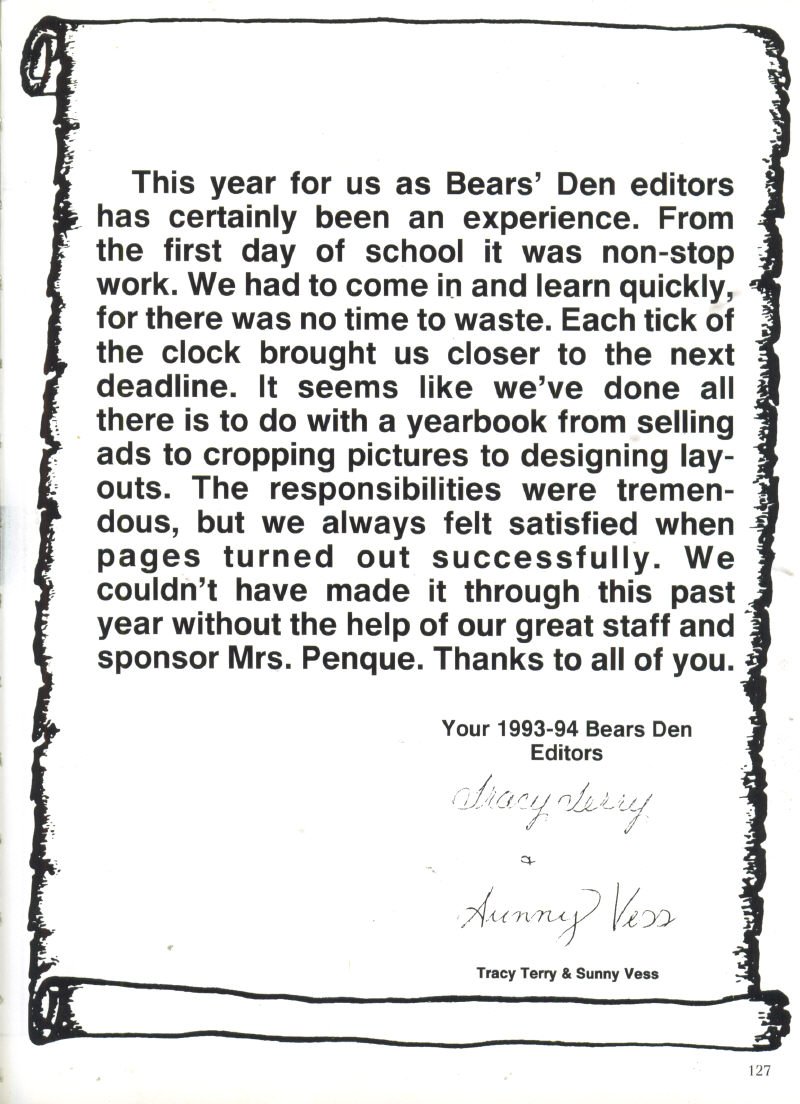 This year for us as Bears' Den editors
has certainly been an experience. From
the first day of school it was non-stop
work. We had to come in and learn quickly,
for there was no time to waste. Each tick of
the clock brought us closer to the next
deadline. It seems like we've done all
there is to do with a yearbook from selling
ads to cropping pictures to designing lay-
outs. The responsibilities were tremen-
dous, but we always felt satisfied when
pages turned out successfully. We
couldn't have made it through this past
year without the help of our great staff and
sponsor Mrs. Penque. Thanks to all of you.
Your 1993-94 Bears Den
Editors
Tracy Terry
&
Sunny Vess
Tracy Terry & Sunny Vess
127